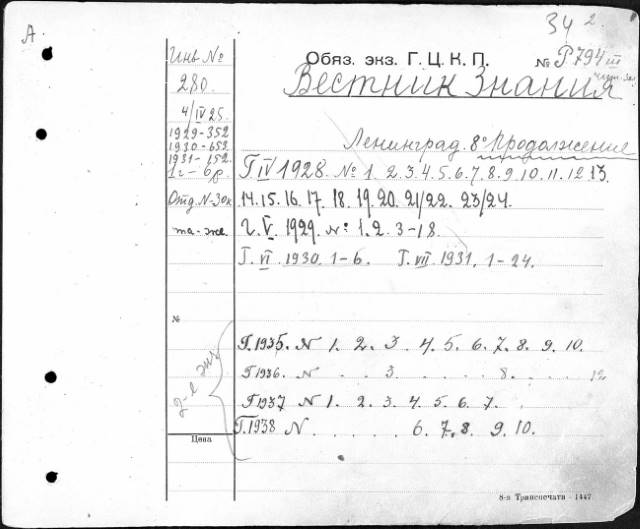 34 2.
А.
Инв №
280
4/IV 25.
1929-352
1930-653
1931-152.
1 г - 6 р.
Отд. N-30к
та-же.
Обяз. экз. Г. Ц. К. П. № Р794 III
Вестник Знания
Ленинград. 8° Продолжение
Г IV 1928. № 1. 2. 3. 4. 5. 6. 7. 8. 9. 10. 11. 12 13.
14. 15. 16. 17. 18. 19. 20. 21/22. 23/24.
Г. V. 1929. №: 1. 2. 3-18.
Г. VI 1930. 1-6. Г. VII 1931. 1-24.
№
2-й экз
Г. 1935. N 1. 2. 3 4. 5. 6. 7. 8. 9. 10.
Г 1936. N . . 3 . . . . 8 . . . . 12
Г 1937 N 1. 2. 3. 4. 5. 6. 7.
Г. 1938 N . . . . . 6. 7. 8. 9. 10.
Цена
8-я Транспечати - 1447